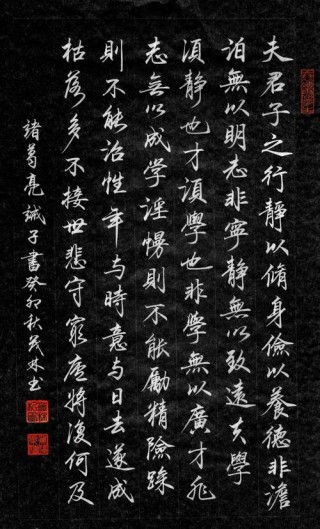 夫君子之行靜以脩身儉以養德非澹
泊無以明志非寧靜無以致遠夫學
須靜也才須學也非學無以廣才非
志無以成學淫慢則不能勵精險躁
則不能治性年与時意与日去遂成
枯落多不接世悲守窮廬將復何及
諸葛亮誡子書癸卯秋茂林书